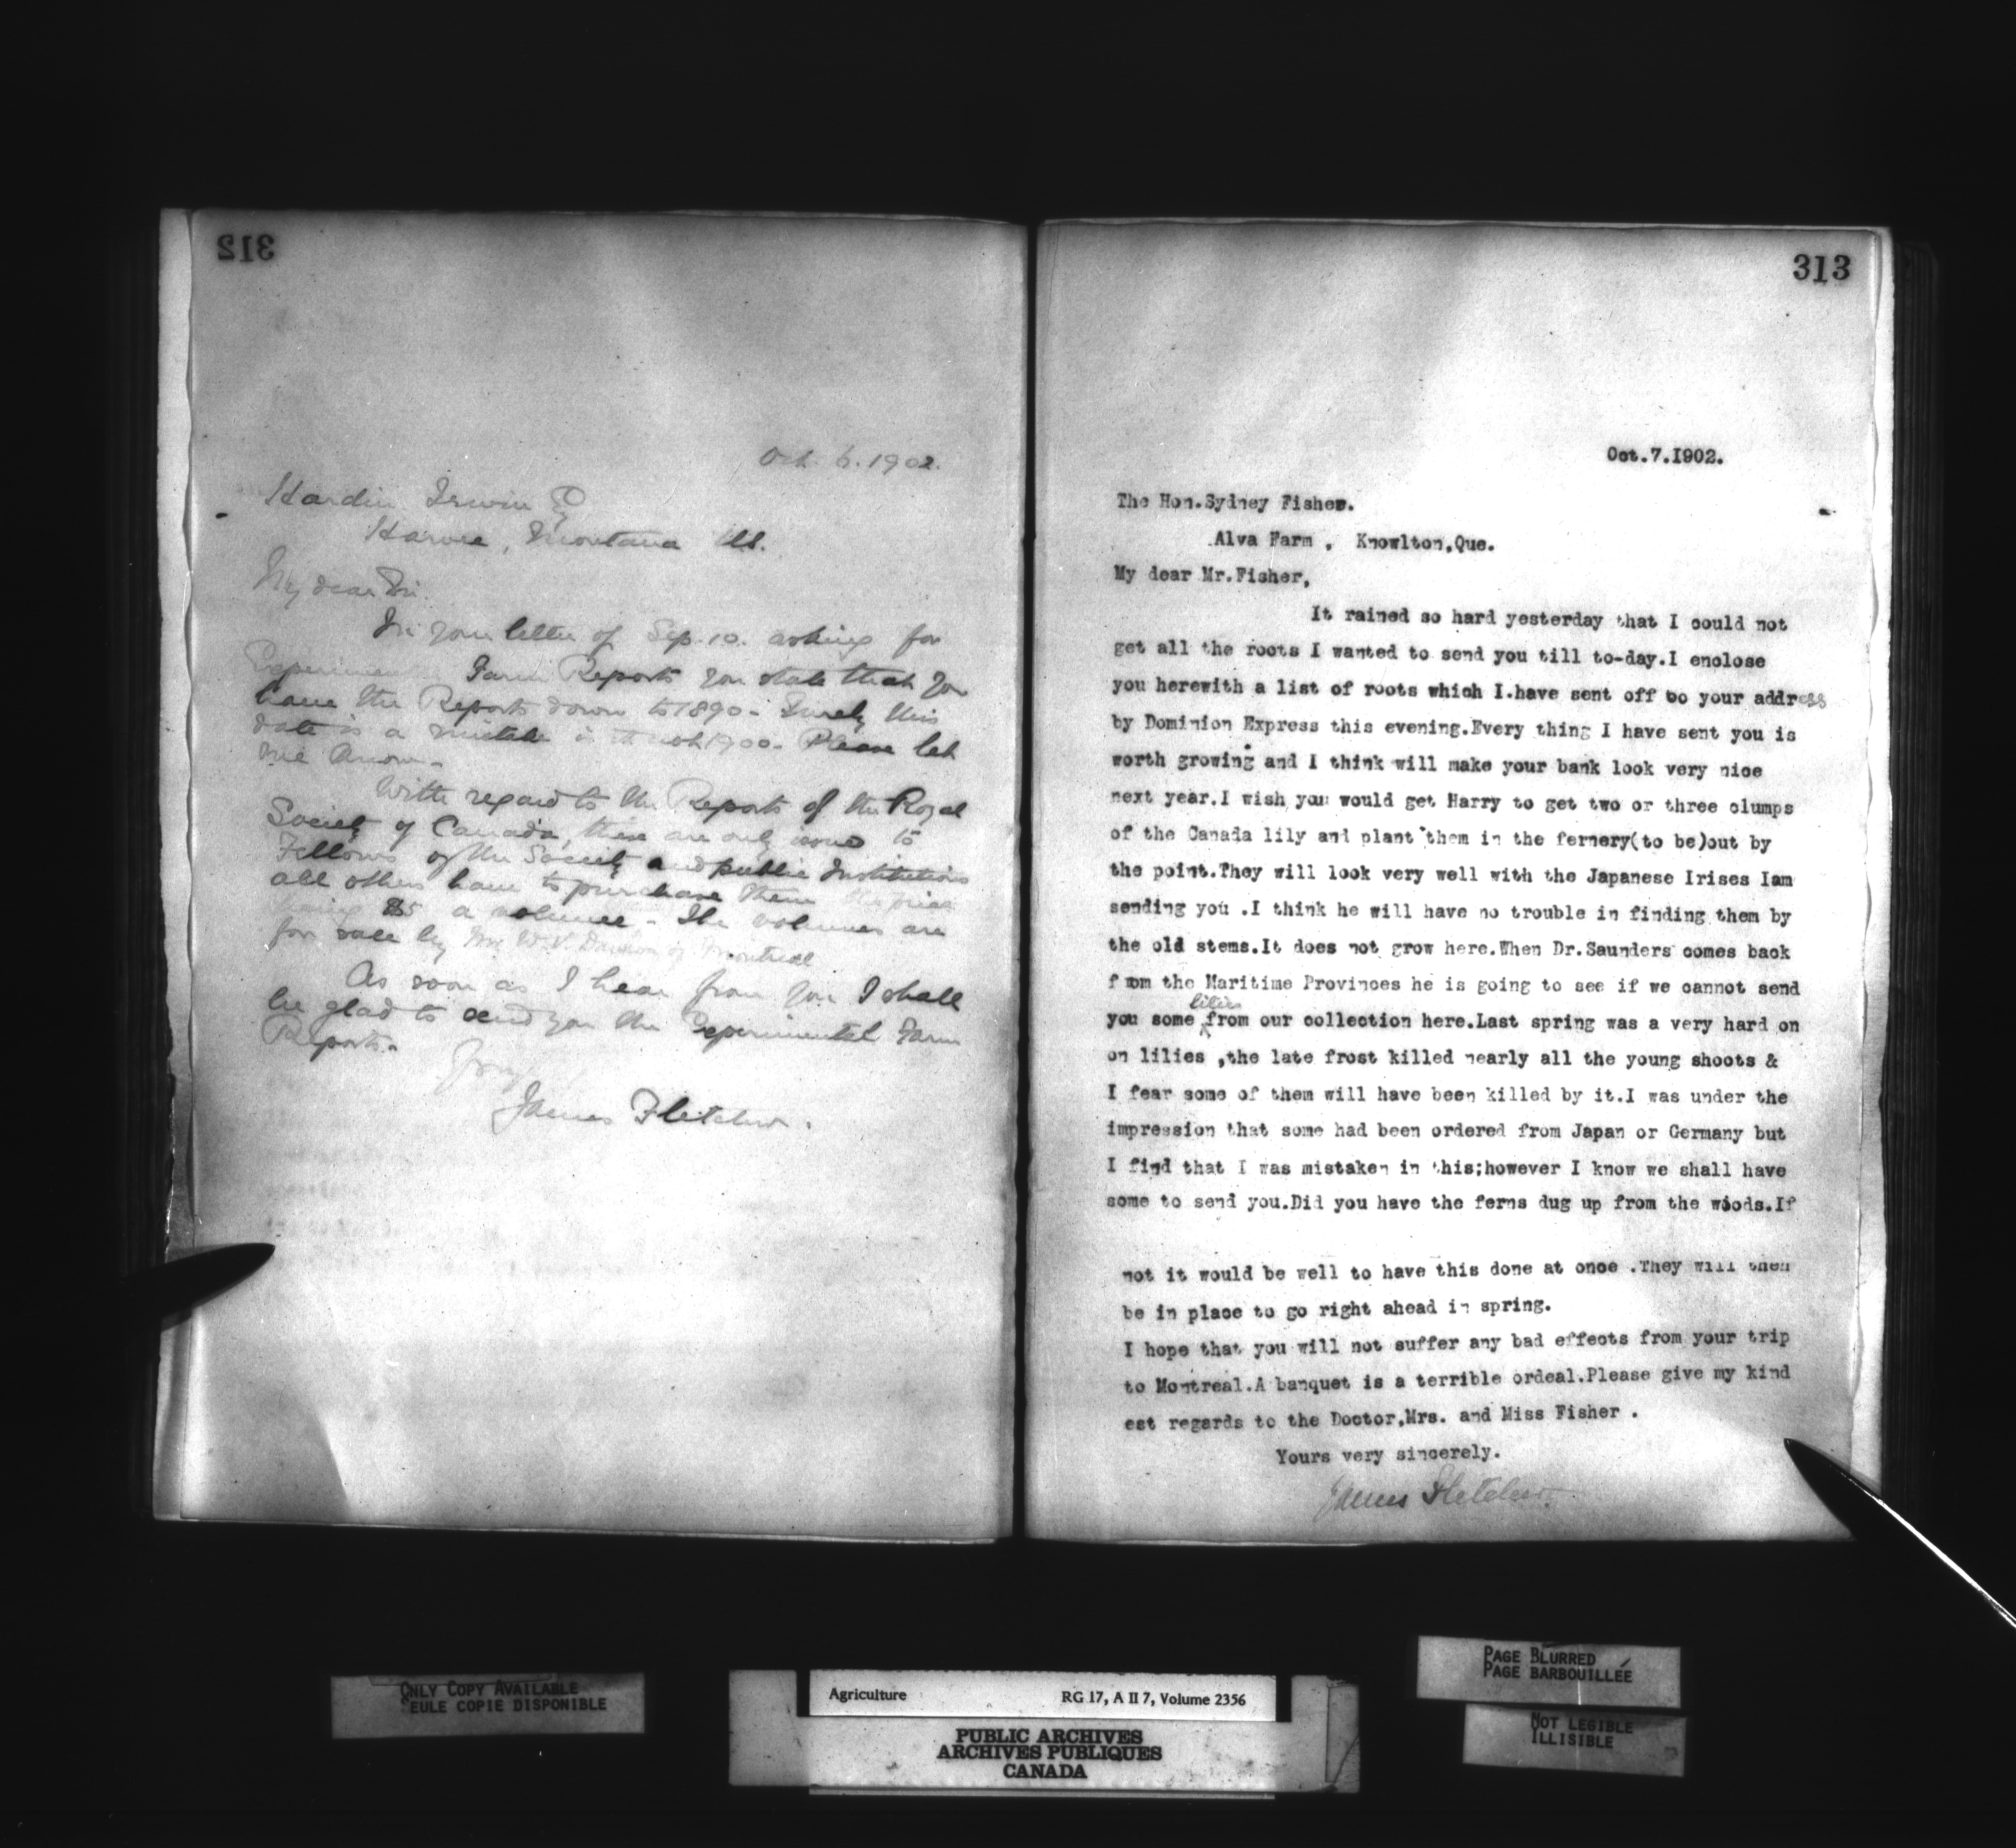 312
Oct. 6. 1902.
Hardin Irwin Esq
Harvre, Montana U.S.
My dear Sir.
In your letter of Sep. 10. asking for
Experimental Farm Reports you state that you
have the Reports down to 1890 - Surely this
date is a mistake is it not 1900. Please let
me know -
With regard to the Reports of the Royal
Society of Canada, these are only issued to
Fellows of the Society and public Institutions
all others have to purchase them the price
being $5 a volume - The volumes are
for sale by Mr W. V. Dawson of Montreal
As soon as I hear from you I shall
be glad to send you the Experimental Farm
Reports -
Yours
James Fletcher.
313
Oct.7.1902.
The Hon.Sydney Fisher.
Alva Farm , Knowlton,Que.
My dear Mr.Fisher,
It rained so hard yesterday that I could not
get all the roots I wanted to send you till to-day.I enclose
you herewith a list of roots which I.have sent off to your address
by Dominion Express this evening.Every thing I have sent you is
worth growing and I think will make your bank look very nice
next year.I wish you would get Harry to get two or three clumps
of the Canada lily and plant them in the fernery(to be)out by
the point.They will look very well with the Japanese Irises Iam
sending you .I think he will have no trouble in finding them by
the old stems.It does not grow here.When Dr.Saunders comes back
from the Maritime Provinces he is going to see if we cannot send
you some lilies from our collection here.Last spring was a very hard on
on lilies ,the late frost killed nearly all the young shoots &
I fear some of them will have been killed by it.I was under the
impression that some had been ordered from Japan or Germany but
I find that I was mistaken in this;however I know we shall have
some to send you.Did you have the ferns dug up from the woods.If
not it would be well to have this done at once .They will then
be in place to go right ahead in spring.
I hope that you will not suffer any bad effects from your trip
to Montreal.A banquet is a terrible ordeal.Please give my kind
est regards to the Doctor,Mrs. and Miss Fisher .
Yours very sincerely.
James Fletcher
ONLY COPY AVAILABLE
SEULE COPIE DISPONIBLE
Agriculture RG 17, A II 7, Volume 2356
PUBLIC ARCHIVES
ARCHIVES PUBLIQUES
CANADA
PAGE BLURRED
PAGE BARBOUILLÉE
NOT LEGIBLE
ILLISIBLE